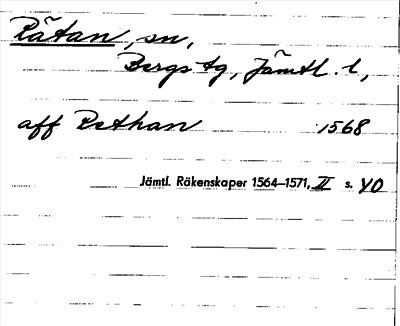 Rätan, sn,
Bergs tg, Jämtl. l,
aff Rethan 1568
Jämtl. Räkenskaper 1564–1571, II s. 40